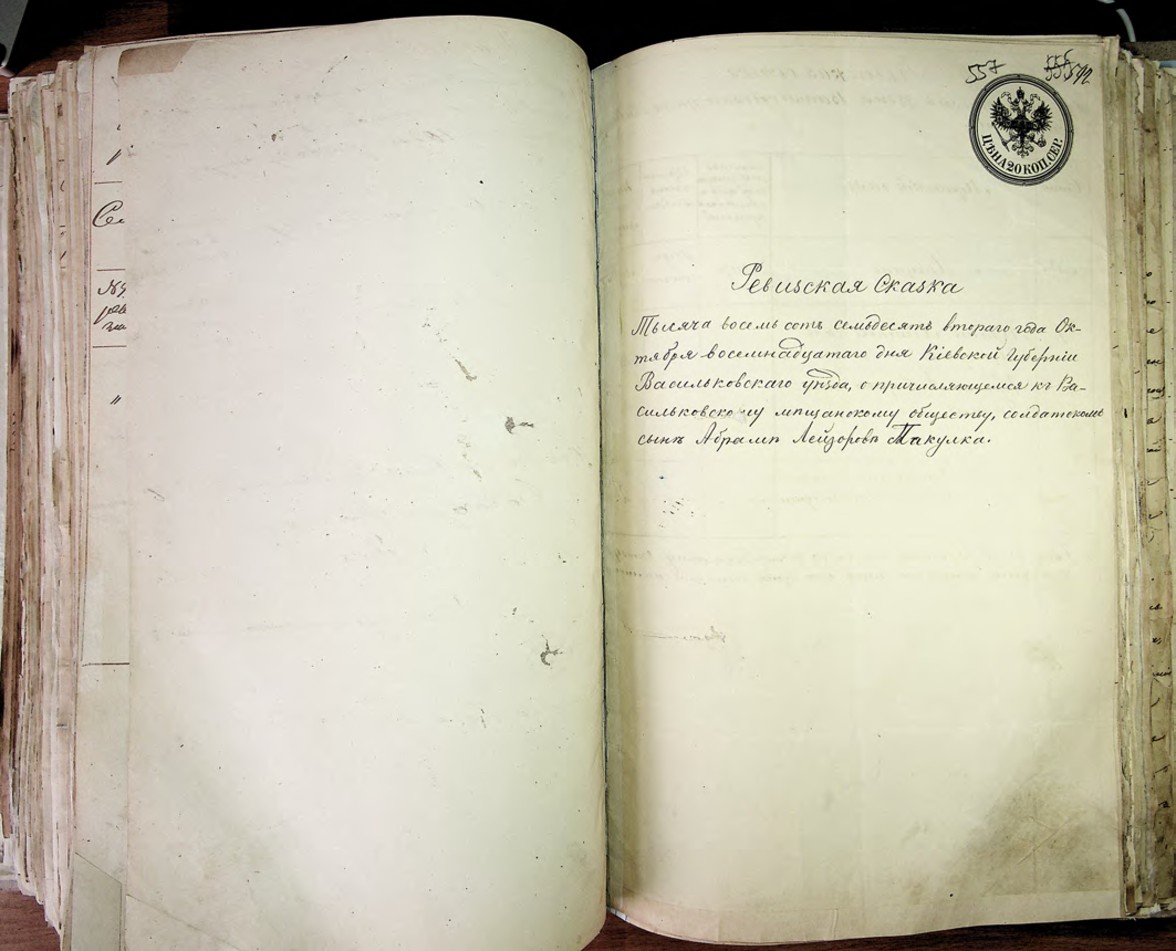 557
542
ЦѢНА 20 КОП. СЕР.
Ревизская Сказка
Тысяча восемь сотъ семьдесятъ втораго года Ок-
тября восемнадцатаго дня Кіевской Губерніи
Васильковскаго уѣзда, о причисляющемся къ Ва-
сильковскому мѣщанскому обществу, солдатскомъ
сынѣ Абрамѣ Лейзоровѣ Пакулка.